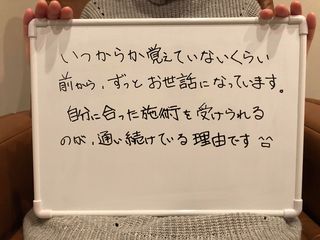 いつからか覚えていないくらい
前から、ずっとお世話になっています。
自分に合った施術を受けられる
のが、通い続けている理由です ^^